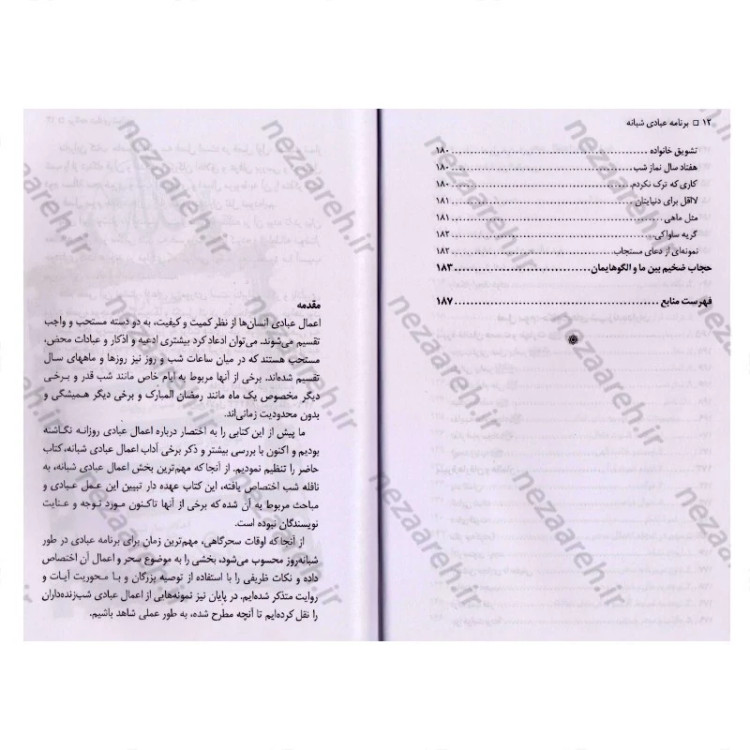 ۱۲ □ برنامه عبادی شبانه
تشویق خانواده ............ ۱۸۰
هفتاد سال نماز شب ............ ۱۸۰
کاری که ترک نکردم ............ ۱۸۰
لااقل برای دنیایتان ............ ۱۸۱
مثل ماهی ............ ۱۸۱
گریه ساواکی ............ ۱۸۲
نمونه‌ای از دعای مستجاب ............ ۱۸۲
حجاب ضخیم بین ما و الگوهایمان ............ ۱۸۳
فهرست منابع ............ ۱۸۷
مقدمه
اعمال عبادی انسان‌ها از نظر کمیت و کیفیت، به دو دسته مستحب و واجب
تقسیم می‌شوند. می‌توان ادعاد کرد بیشتری ادعیه و اذکار و عبادات محض،
مستحب هستند که در میان ساعات شب و روز نیز روزها و ماههای سال
تقسیم شده‌اند. برخی از آنها مربوط به ایام خاص مانند شب قدر و برخی
دیگر مخصوص یک ماه مانند رمضان المبارک و برخی دیگر همیشگی و
بدون محدودیت زمانی‌اند.
ما پیش از این کتابی را به اختصار درباره اعمال عبادی روزانه نگاشته
بودیم و اکنون با بررسی بیشتر و ذکر برخی آداب اعمال عبادی شبانه، کتاب
حاضر را تنظیم نمودیم. از آنجا که مهم‌ترین بخش اعمال عبادی شبانه، به
نافله شب اختصاص یافته، این کتاب عهده دار تبیین این عمل عبادی و
مباحث مربوط به آن شده که برخی از آنها تاکنون مورد توجه و عنایت
نویسندگان نبوده است.
از آنجا که اوقات سحرگاهی، مهم‌ترین زمان برای برنامه عبادی در طور
شبانه‌روز محسوب می‌شود، بخشی را به موضوع سحر و اعمال آن اختصاص
داده و نکات ظریفی را با استفاده از توصیه بزرگان و با محوریت آیات و
روایت متذکر شده‌ایم. در پایان نیز نمونه‌هایی از اعمال عبادی شب‌زنده‌داران
را نقل کرده‌ایم تا آنچه مطرح شده، به طور عملی شاهد باشیم.
nezaareh.ir